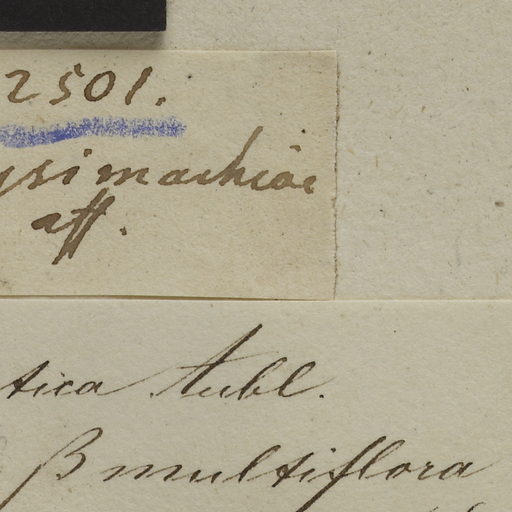 2501.
ysimachiae
aff.
tica Aubl.
β multiflora